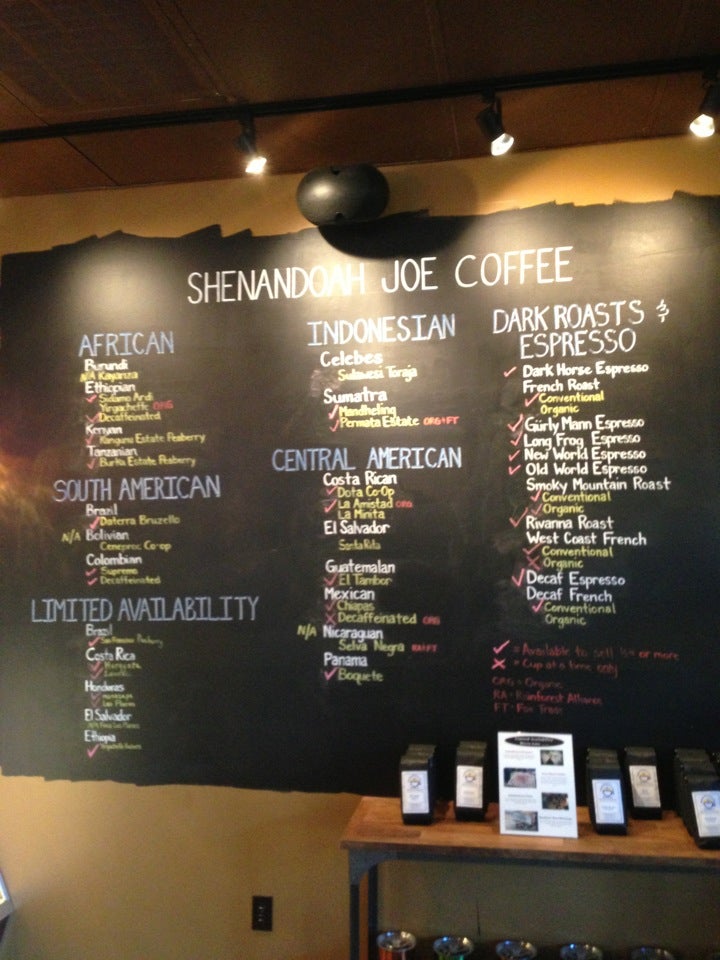 SHENANDOAH JOE COFFEE
AFRICAN
Burundi
N/A Kayanza
Ethiopian
Sidamo Ardi
Yirgacheffe ORG
Decaffeinated
Kenyan
Kangunu Estate Peaberry
Tanzanian
Burka Estate Peaberry
SOUTH AMERICAN
Brazil
Daterra Bruzello
N/A Bolivian
Ceneproc Co-op
Colombian
Supremo
Decaffeinated
LIMITED AVAILABILITY
Brazil
Costa Rica
Honduras
El Salvador
Ethiopia
INDONESIAN
Celebes
Sulawesi Toraja
Sumatra
Mandheling
Permata Estate ORG+FT
CENTRAL AMERICAN
Costa Rican
Dota Co-Op
La Amistad ORG
La Minita
El Salvador
Santa Rita
Guatemalan
El Tambor
Mexican
Chiapas
Decaffeinated ORG
N/A Nicaraguan
Selva Negra RA+FT
Panama
Boquete
DARK ROASTS &
ESPRESSO
Dark Horse Espresso
French Roast
Conventional
Organic
Gürly Mann Espresso
Long Frog Espresso
New World Espresso
Old World Espresso
Smoky Mountain Roast
Conventional
Organic
Rivanna Roast
West Coast French
Conventional
Organic
Decaf Espresso
Decaf French
Conventional
Organic
✓ = Available to sell 1/2# or more
X = Cup at a time only
ORG - Organic
RA - Rainforest Alliance
FT - Fair Trade